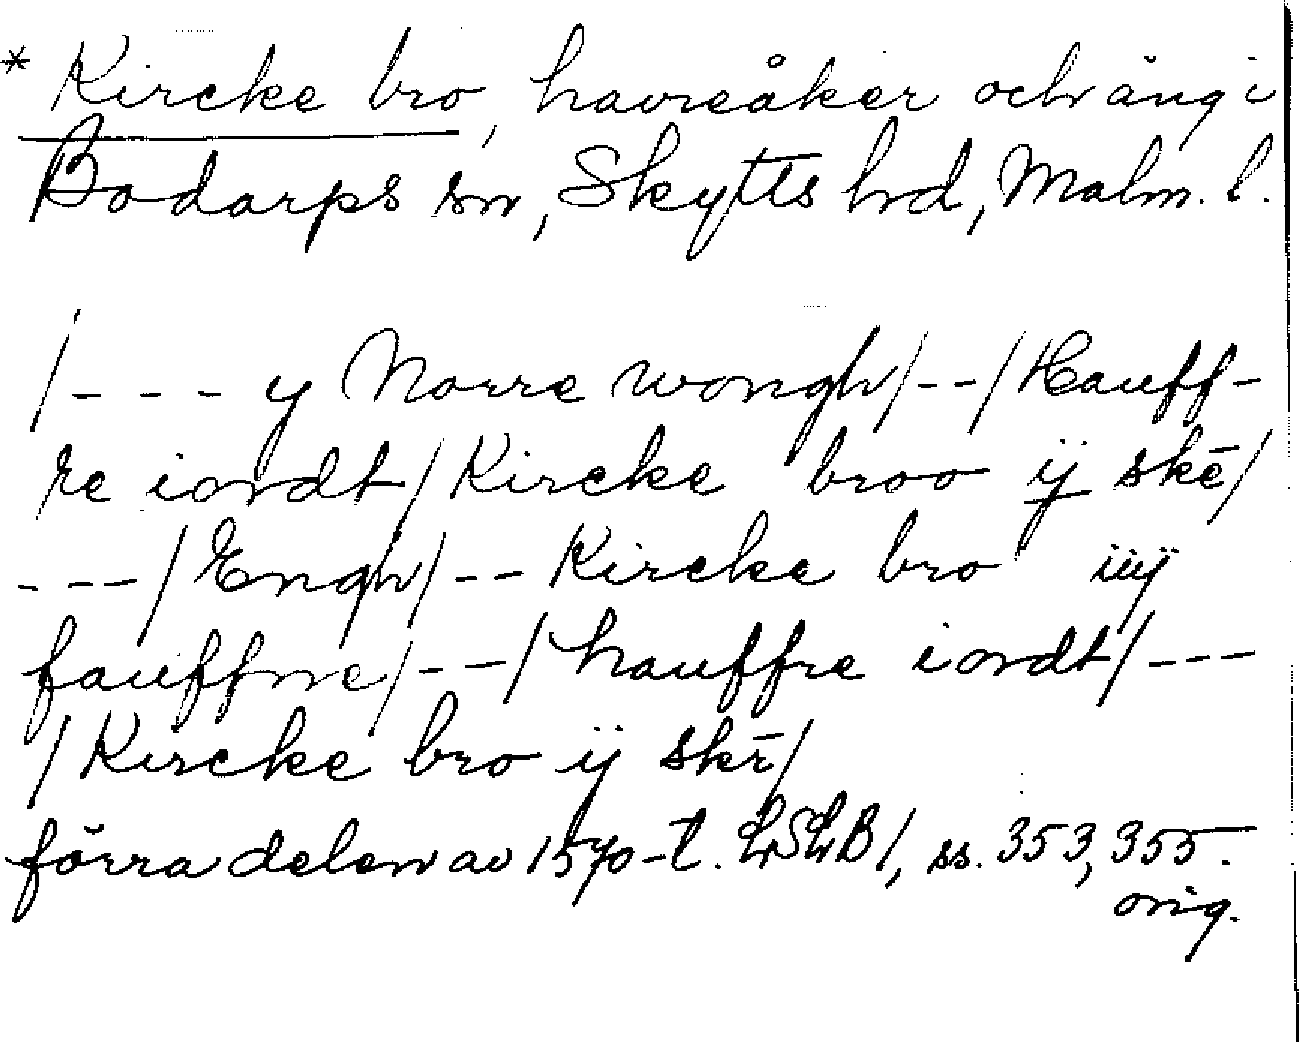 * Kircke bro, havreåker och äng i
Bodarps sn, Skytts hd, Malm. l.
/--- y Norre wongh/--/Hauff-
re iordt/Kircke broo ij skē/
---/Engh/-- Kircke bro iiij
fauffne/--/hauffre iordt/---
/Kircke bro ij skr̄/
förra delen av 1570-t. LSLB1, ss. 353, 355.
orig.